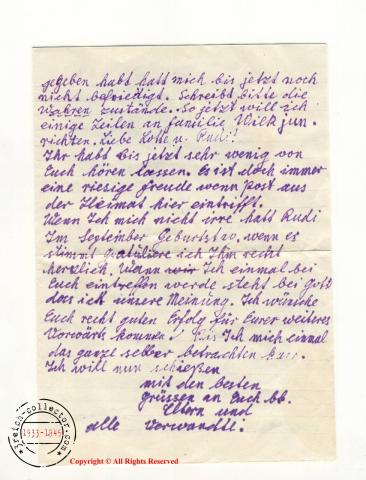 gegeben habt hatt mich bis jetzt noch
nicht befriedigt. Schreibt bitte die
Wahren zustände. So jetzt will ich
einige Zeilen an familie Wilk jun.
richten. Liebe Lotte u. Rudi!
Ihr habt bis jetzt sehr wenig von
Euch hören lassen. Es ist doch immer
eine riesige freude wenn post aus
der Heimat hier eintrifft.
Wenn Ich mich nicht irre hatt Rudi
Im September Geburtstag, wenn es
stimmt gratuliere ich Ihm recht
herzlich. Wann Ich einmal bei
Euch eintreffen werde steht bei gott
das ist unsere Meinung. Ich wünsche
Euch recht guten Erfolg für Eurer weiteres
Vorwärts kommen! Bis Ich mich einmal
das ganze selber betrachten kann.
Ich will nun schießen
mit den besten
grüssen an Euch bb.
Eltern und
alle Verwandte.
3reich-collector.com
1933-1945
Copyright © All Rights Reserved